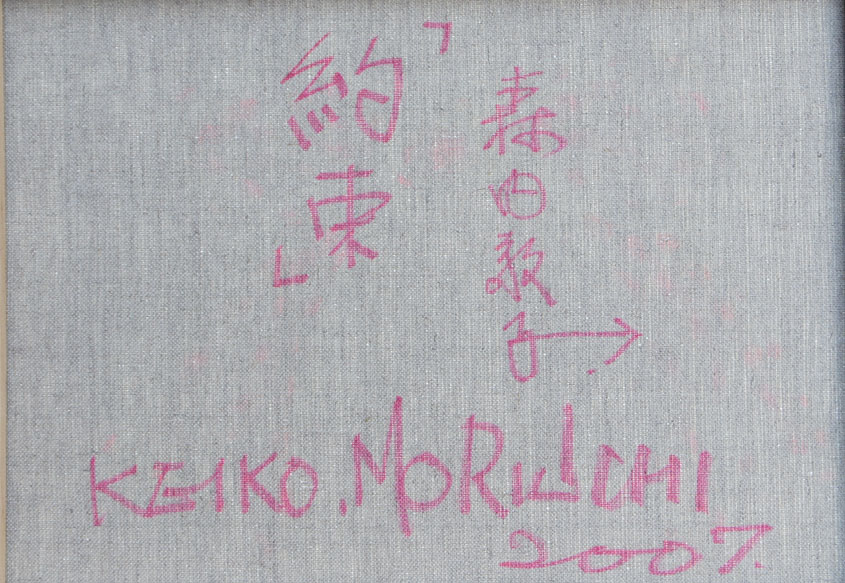 森内敬子
「約束」
KEIKO.MORIUCHI
2007.